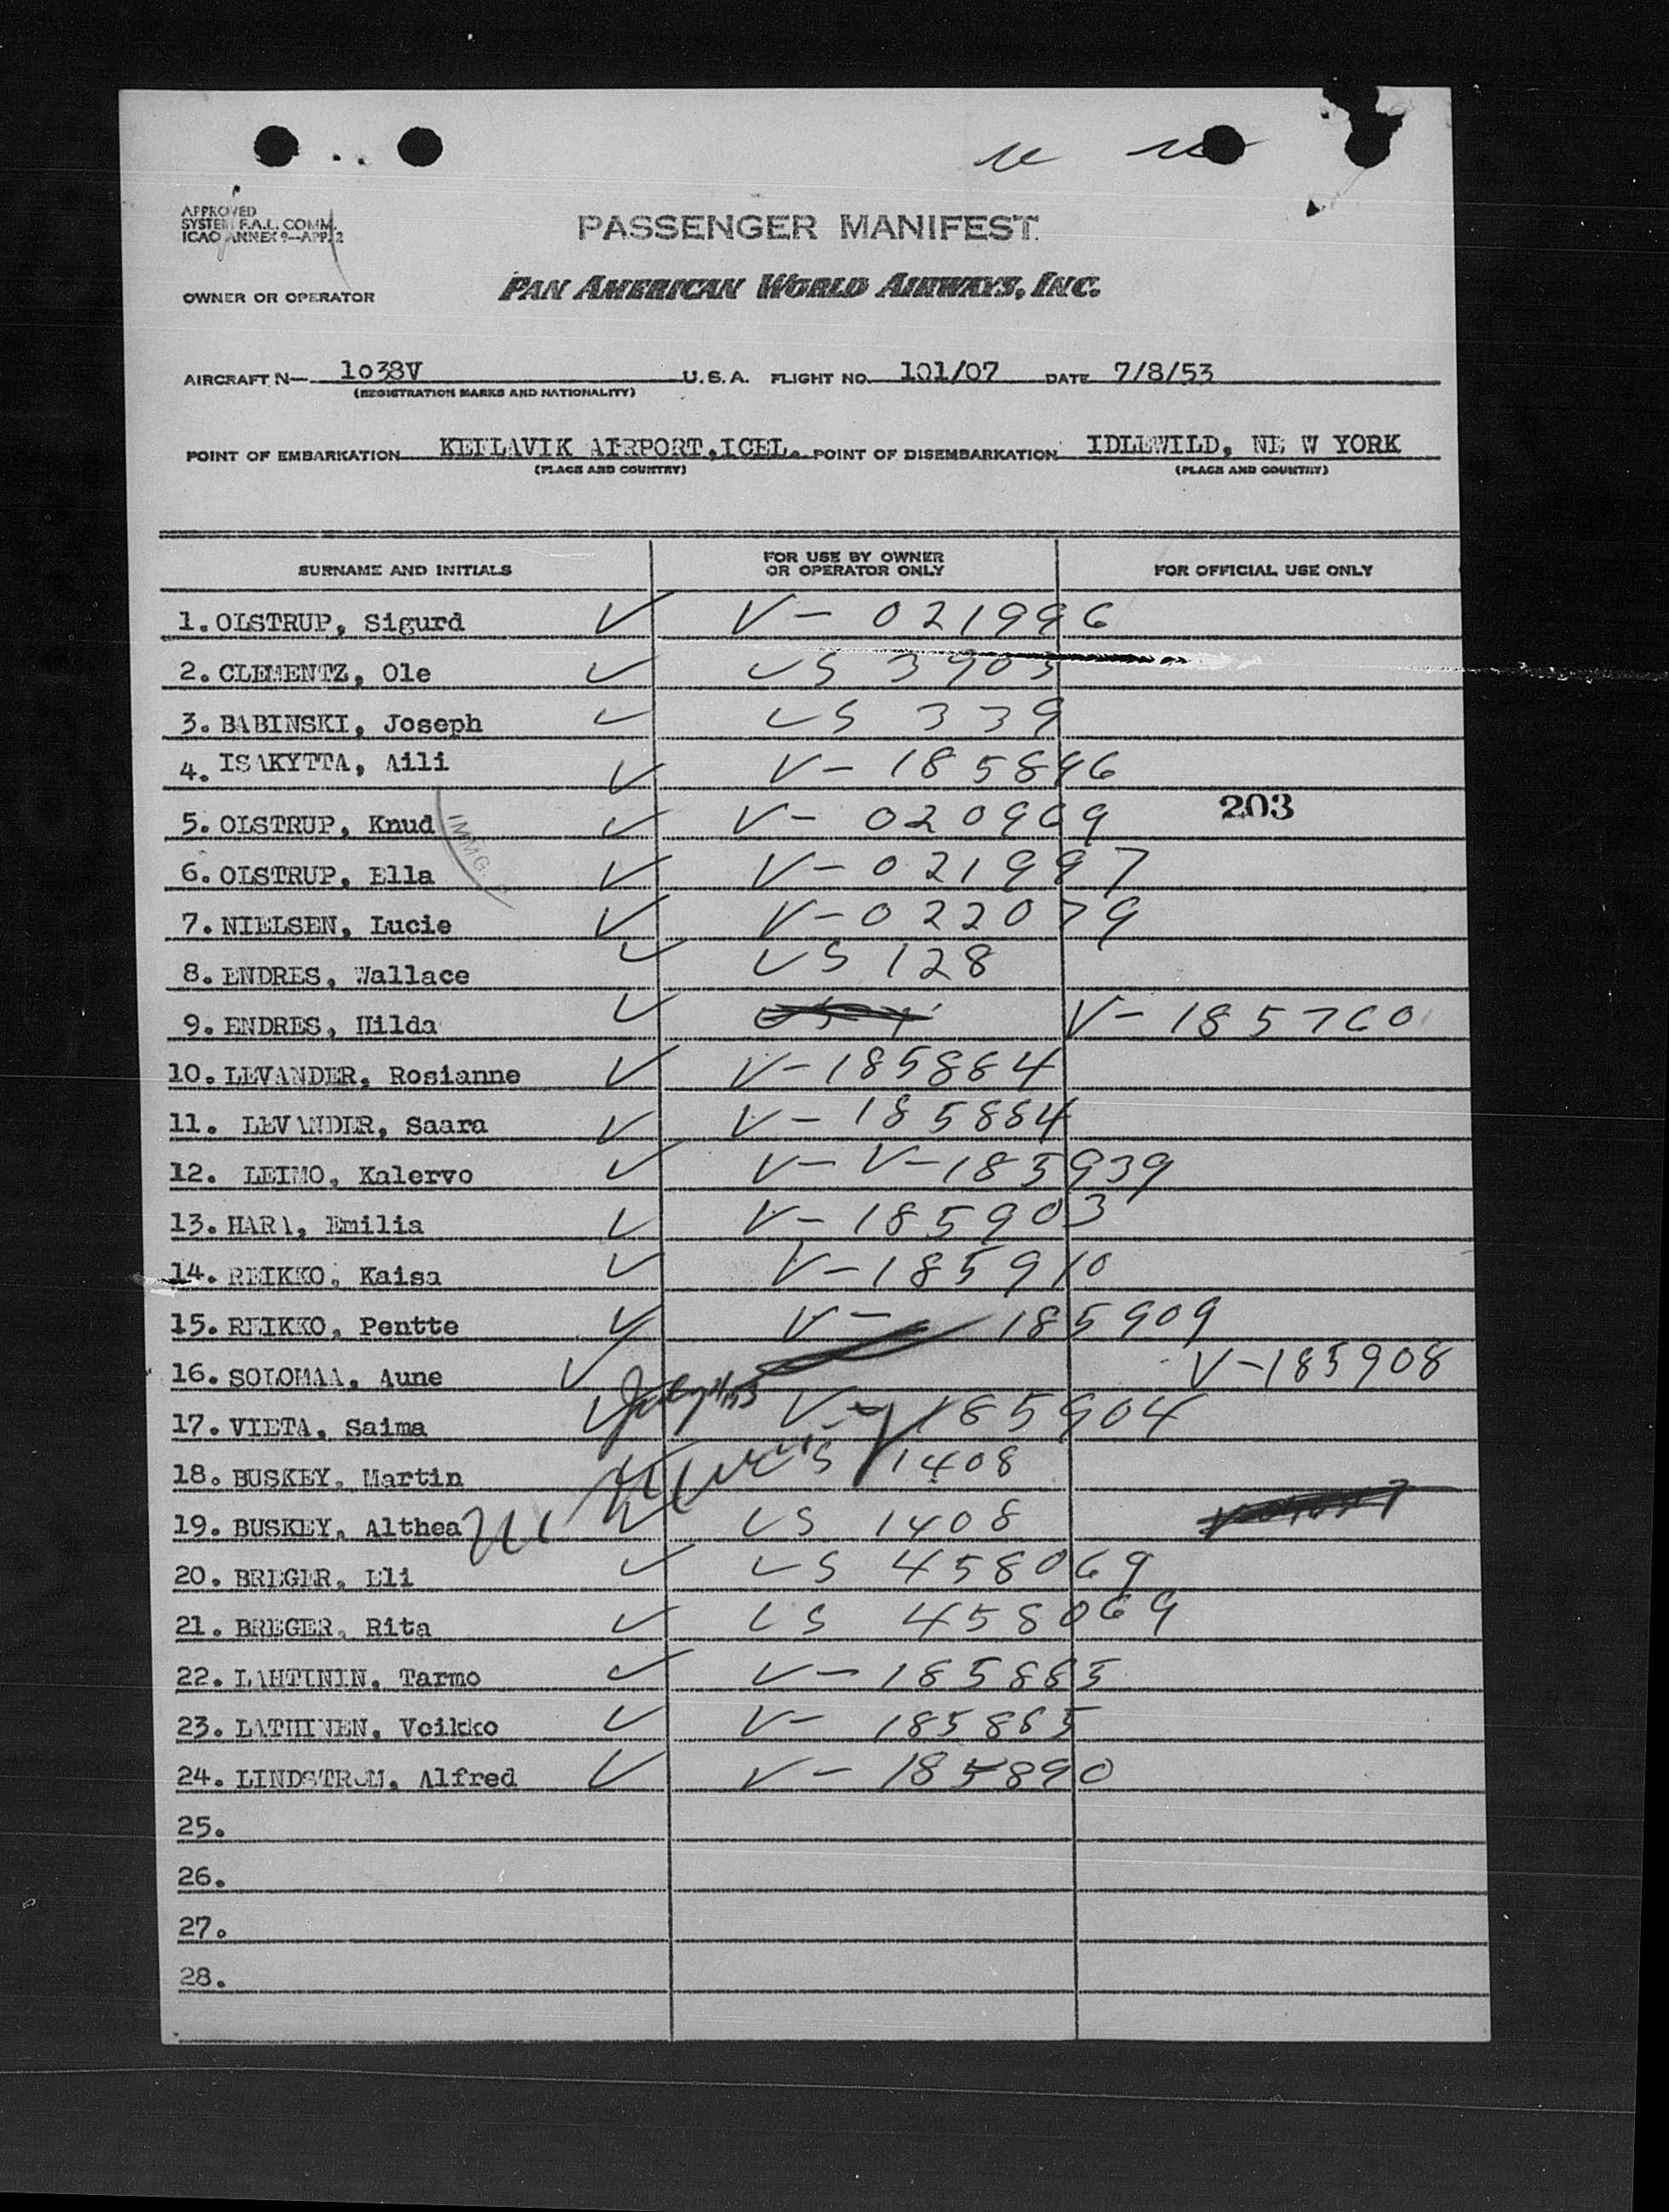 APPROVED
SYSTEM F.A.L. COMM.
ICAO ANNEX 9—APP. 2
PASSENGER MANIFEST
OWNER OR OPERATOR PAN AMERICAN WORLD AIRWAYS, INC.
AIRCRAFT N— 1o38V U.S.A. FLIGHT NO. 101/07 DATE 7/8/53
(REGISTRATION MARKS AND NATIONALITY)
POINT OF EMBARKATION KEFLAVIK AIRPORT,ICEL. POINT OF DISEMBARKATION IDLEWILD, NE W YORK
(PLACE AND COUNTRY) (PLACE AND COUNTRY)
SURNAME AND INITIALS FOR USE BY OWNER OR OPERATOR ONLY FOR OFFICIAL USE ONLY
1. OLSTRUP, Sigurd ✓ V- 021996
2. CLEMENTZ, Ole ✓ US 3903
3. BABINSKI, Joseph ✓ US 339
4. ISAKYTTA, Aili ✓ V- 185896
5. OLSTRUP, Knud ✓ V- 020969 203
IMMG.
6. OLSTRUP, Ella ✓ V-021997
7. NIELSEN, Lucie ✓ V-022079
8. ENDRES, Wallace ✓ US 128
9. ENDRES, Hilda ✓ V-185760
10. LEVANDER, Rosianne ✓ V-185884
11. LEVANDER, Saara ✓ V-185884
12. LEIMO, Kalervo ✓ V- V-185939
13. HARA, Emilia ✓ V-185903
14. REIKKO, Kaisa ✓ V-185910
15. REIKKO, Pentte ✓ V- 185909
16. SOLOMAA, Aune ✓ V-185908
17. VIETA, Saima ✓ V-185904
18. BUSKEY, Martin ✓ US 1408
19. BUSKEY, Althea ✓ US 1408
20. BREGER, Eli ✓ US 458069
21. BREGER, Rita ✓ US 458069
22. LAHTININ, Tarmo ✓ V-185885
23. LATHINEN, Veikko ✓ V- 185885
24. LINDSTROM, Alfred ✓ V- 185890
25.
26.
27.
28.